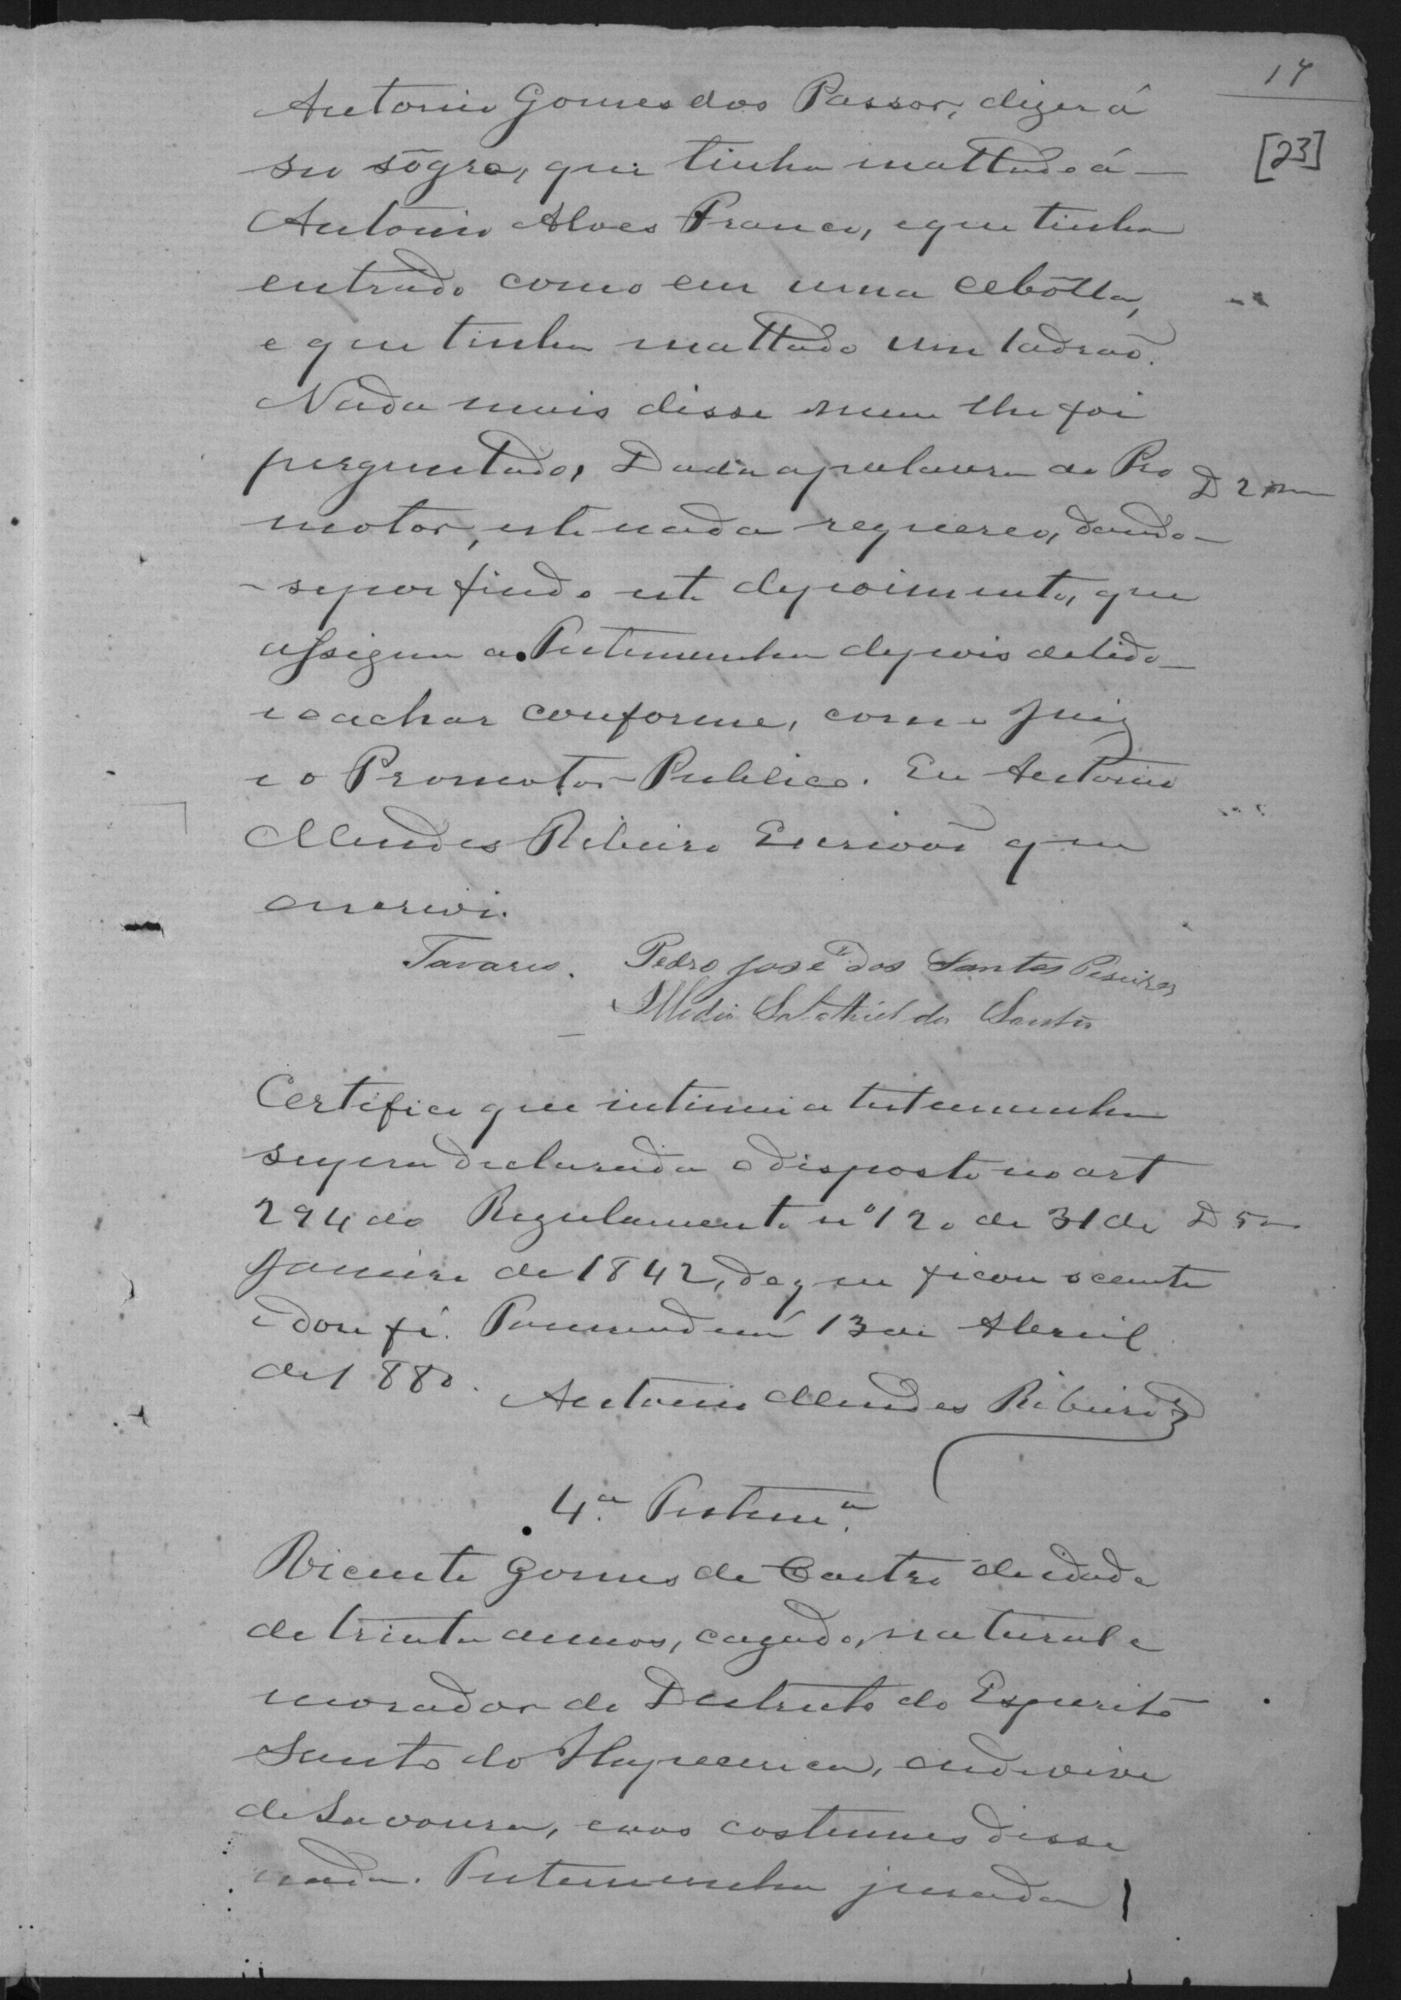 17
[23]
Antonio Gomes dos Passos, dizer á
su sôgro, que tinha mattado á
Antonio Alves Franco, e que tinha
entrado como em uma cebôlla,
e que tinha mattado um ladraõ.
Nada mais disse nem lhe foi
perguntado, Dada a palavra ao Pro
D 2
motor, este nada requereo, dando-
-se por findo este depoimento, que
assigna a Testemunha depois de lido
e o achar conforme, com o Juiz
e o Promotor Publico. Eu Antonio
Mendes Ribeiro Escrivaõ que
escrivi.
Tavares. Pedro José dos Santos
dos Santos
Certifico que intimei a testemunha
supra declarada o disposto no art
294 do Regulamento nº 120 de 31 de
D 5
Janeiro de 1842, do que ficou sciente
e dou fé. 13 de Abril
de 1880.
Antonio Mendes Ribeiro
4.ª Testem.ª
Vicente Gomes de Castro de idade
de trinta annos, cazado, natural e
morador do Destricto do Espirito
Santo do Itapecerica, onde vive
de Lavoura, e aos costumes disse
nada. Testemunha jurada